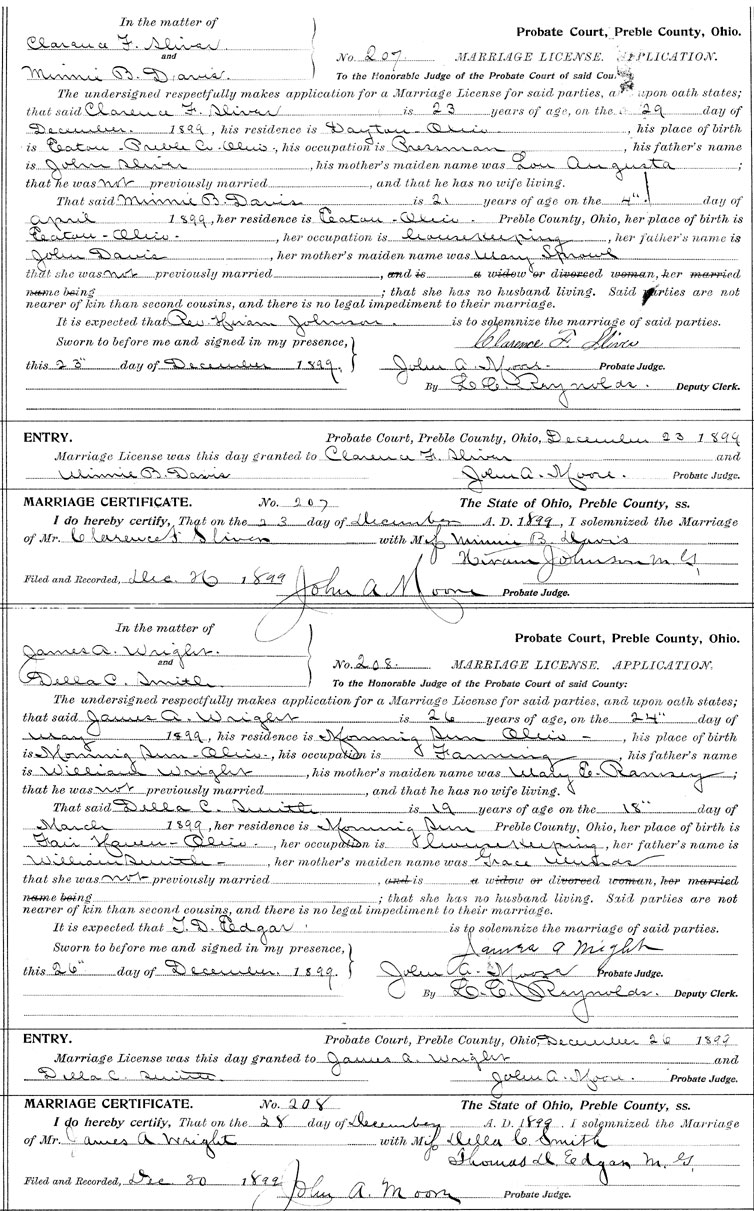 In the matter of
Clarence F. Sliver
and
Minnie B. Davis.
Probate Court, Preble County, Ohio.
No. 207 MARRIAGE LICENSE, APPLICATION.
To the Honorable Judge of the Probate Court of said Cou
The undersigned respectfully makes application for a Marriage License for said parties, a upon oath states;
that said Clarence F. Sliver is 23 years of age, on the 29 day of
December 1899, his residence is Dayton-Ohio, his place of birth
is Eaton-Preble Co-Ohio, his occupation is Pressman, his father's name
is John Sliver, his mother's maiden name was Lou Augusta;
that he was not previously married, and that he has no wife living.
That said Minnie B. Davis is 21 years of age on the 4" day of
April 1899, her residence is Eaton-Ohio. Preble County, Ohio, her place of birth is
Eaton-Ohio-, her occupation is Housekeeping, her father's name is
John Davis, her mother's maiden name was Mary Sprowl
that she was not previously married, and is a widow or divorced woman, her married
name being ; that she has no husband living. Said parties are not
nearer of kin than second cousins, and there is no legal impediment to their marriage.
It is expected that Rev. Hiram Johnson. is to solemnize the marriage of said parties.
Sworn to before me and signed in my presence, Clarence F. Sliver
this 23" day of December 1899, John A. Moore. Probate Judge.
By L. C. Reynolds. Deputy Clerk.
ENTRY. Probate Court, Preble County, Ohio, December 23 1899
Marriage License was this day granted to Clarence F. Sliver and
Minnie B. Davis John A. Moore. Probate Judge.
MARRIAGE CERTIFICATE. No. 207 The State of Ohio, Preble County, ss.
I do hereby certify, That on the 23 day of December A. D. 1899, I solemnized the Marriage
of Mr. Clarence F Sliver with Miss Minnie B. Davis
Hiram Johnson M. G.
Filed and Recorded, Dec. 26 1899 John A Moore Probate Judge.
In the matter of
James A. Wright.
and
Della C. Smith.
Probate Court, Preble County, Ohio.
No. 208. MARRIAGE LICENSE. APPLICATION.
To the Honorable Judge of the Probate Court of said County:
The undersigned respectfully makes application for a Marriage License for said parties, and upon oath states;
that said James A. Wright is 26 years of age, on the 24" day of
May 1899, his residence is Morning Sun Ohio-, his place of birth
is Morning Sun-Ohio-, his occupation is Farming, his father's name
is William Wright, his mother's maiden name was Mary E. Ramsey;
that he was not previously married, and that he has no wife living.
That said Della C. Smith is 19 years of age on the 18" day of
March 1899, her residence is Morning Sun Preble County, Ohio, her place of birth is
Fair Haven-Ohio., her occupation is Housekeeping, her father's name is
William Smith-, her mother's maiden name was Grace
that she was not previously married, and is a widow or divorced woman, her married
name being ; that she has no husband living. Said parties are not
nearer of kin than second cousins, and there is no legal impediment to their marriage.
It is expected that T. D. Edgar is to solemnize the marriage of said parties.
Sworn to before me and signed in my presence, James A Wright
this 26" day of December. 1899. John A. Moore Probate Judge.
By L. C. Reynolds. Deputy Clerk.
ENTRY. Probate Court, Preble County, Ohio, December 26 1899
Marriage License was this day granted to James A. Wright and
Della C. Smith. John A. Moore. Probate Judge.
MARRIAGE CERTIFICATE. No. 208 The State of Ohio, Preble County, ss.
I do hereby certify, That on the 28 day of December A. D. 1899, I solemnized the Marriage
of Mr. James A Wright with Miss Della C. Smith
Thomas D. Edgar M. G.
Filed and Recorded, Dec 30 1899 John A. Moore Probate Judge.